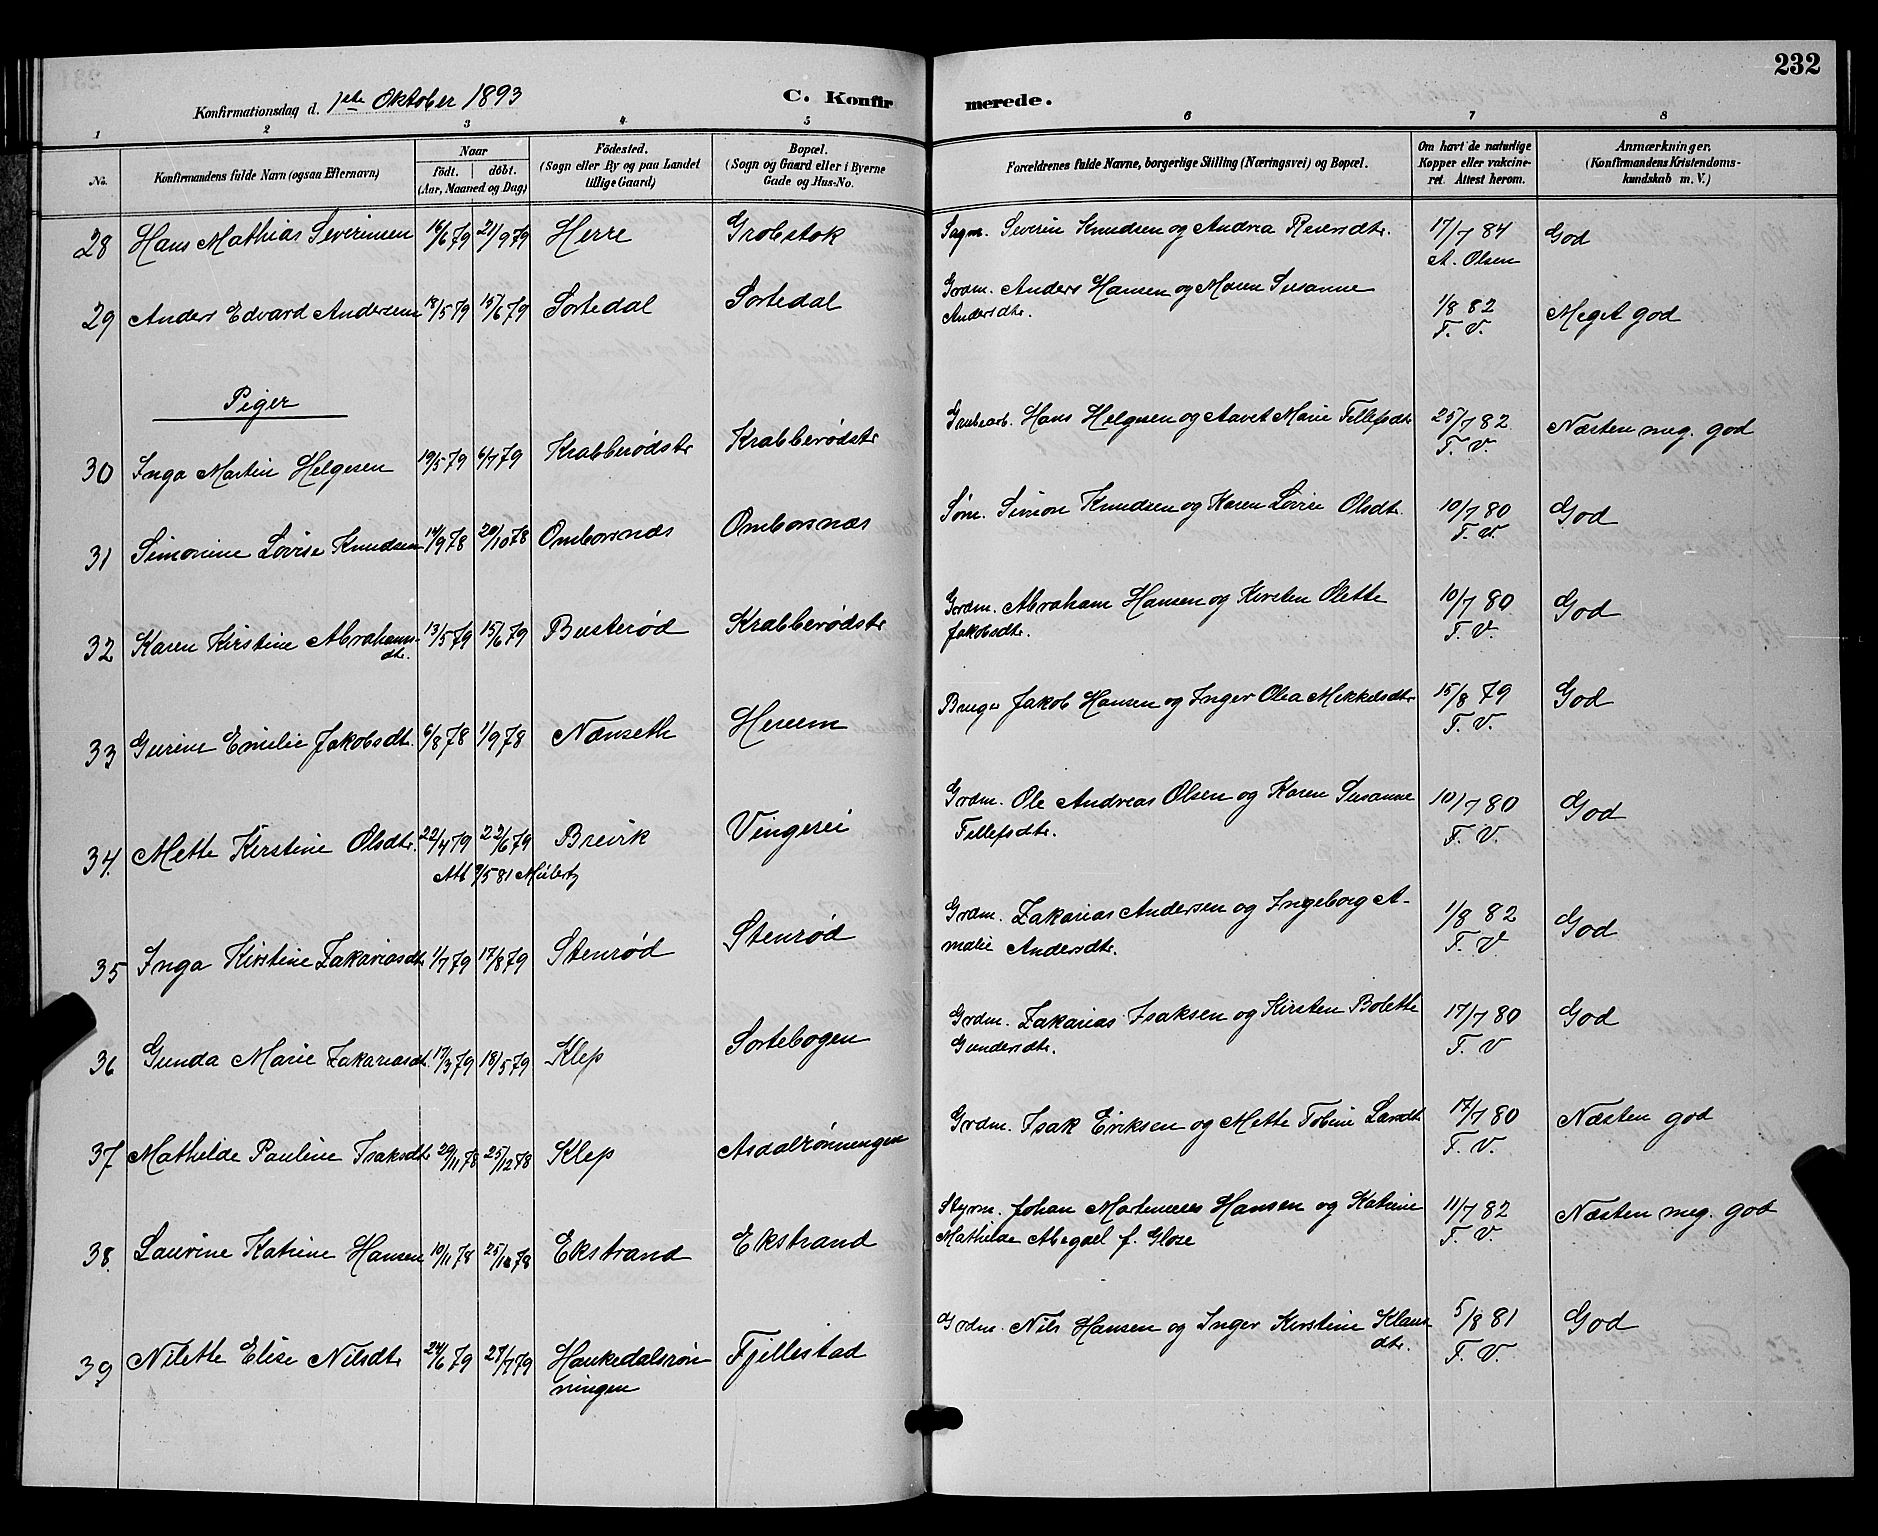 232
Konfirmationsdag d. 1ste Oktober 1893
C. Konfir merede.
1 2 3 4 5 6 7 8
No.
Konfirmandens fulde Navn (ogsaa Efternavn)
Naar
födt. döbt.
(Aar, Maaned og Dag)
Födested.
(Sogn eller By og paa Landet
tillige Gaard)
Bopæl.
(Sogn og Gaard eller i Byerne
Gade og Hus-No.
Forældrenes fulde Navne, borgerlige Stilling (Næringsvei) og Bopæl.
Om havt de naturlige
Kopper eller vakcine-
ret. Attest herom.
Anmærkninger.
(Konfirmandens Kristendoms-
kundskab m. V.)
28 Hans Mathias Severinsen 16/6 79 21/9 79 Herre Grobstok Sagm. Severin Knudsen og Andrea Reiersdtr. 17/7 84 God
A. Olsen
29 Anders Edvard Andersen 18/5 79 15/6 79 Sortedal Sortedal Grdm. Anders Hansen og Maren Susanne 1/8 82 Meget god
Andersdtr. F. V.
Piger
30 Inga Martin Helgesen 19/5 79 6/7 79 Krabberødstr Krabberødstr Grubearb. Hans Helgesen og Aavet Marie Tellefsdtr 25/7 82 Næsten meg. god
F. V.
31 Simonine Lovise Knudsen 14/9 78 20/10 78 Omborsnæs Omborsnæs Søm. Simon Knudsen og Karen Lovise Olsdt. 10/7 80 God
F. V.
32 Karen Kirstine Abrahams- 13/5 79 15/6 79 Busterød Krabberødstr Grdm. Abraham Hansen og Kirsten Olette 10/7 80 God
dtr. Jakobsdtr. F. V.
33 Gurine Emilie Jakobsdt. 6/8 78 1/9 78 Nænseth Hereem Bruger Jakob Hansen og Inger Olea Mikkelsdtr 15/8 79 God
F. V.
34. Mette Kirstine Olsdtr. 22/4 79 22/6 79 Brevik Vingerei Grdm. Ole Andreas Olsen og Karen Susanne 10/7 80 God
Att /5 81 Tellefsdtr. F. V.
35 Inga Kirstine Zakariasdt. 1/7 79 17/8 79 Stenrød Stenrød Grdm. Zakarias Andersen og Ingeborg A- 1/8 82 God
malie Andersdtr. F. V
36 Gunda Marie Zakariasdt. 17/3 79 18/5 79 Klep Sortebogen Grdm. Zakarias Isaksen og Kirsten Bolette 17/7 80 God
Gundersdtr. F. V
37 Mathilde Pauline Isaksdt. 29/11 78 25/12 78 Klep Asdalrønnengen Grdm. Isak Eriksen og Mette Tobine Larsdt. 17/7 80 Næsten god
F. V.
38. Laurine Katrine Hansen 10/11 78 25/12 78 Ekstrand Ekstrand Styrm. Johan Martenius Hansen og Katrine 11/7 82 Næsten meg. god
Mathilde Abegael f. Glose F. V.
39 Nilette Elise Nilsdt. 24/6 79 27/7 79 Haukedalsrøn Fjellestad Grdm. Nils Hansen og Inger Kirstine Klaus 5/8 81 God
ningen dtr. F. V.